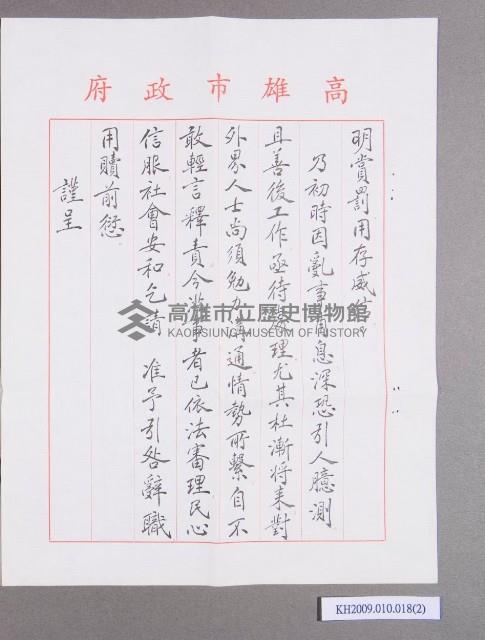 高雄市政府
明賞罰用存威信
乃初時因亂事甫息深恐引人臆測
且善後工作亟待處理尤其杜漸將來對
外界人士尚須勉力溝通情勢所繫自不
敢輕言釋責今滋事者已依法審理民心
信服社會安和乞請 准予引咎辭職
用贖前愆
謹呈
高雄市立歷史博物館
KAOHSIUNG MUSEUM OF HISTORY
KH2009.010.018(2)